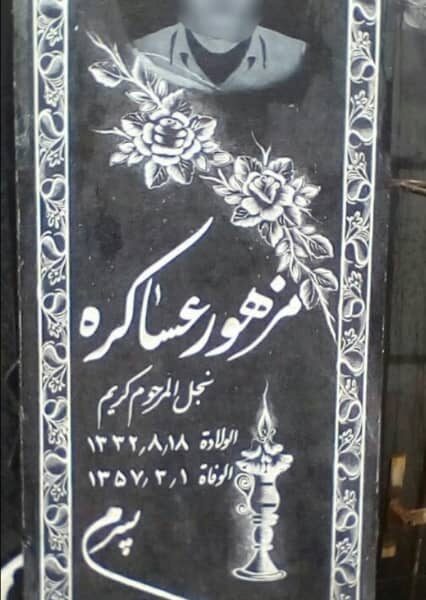 مزهور عساکره
نجل المرحوم کریم
الولادة ۱۳۳۲٫۸٫۱۸
الوفاة ۱۳۵۷٫۳٫۱